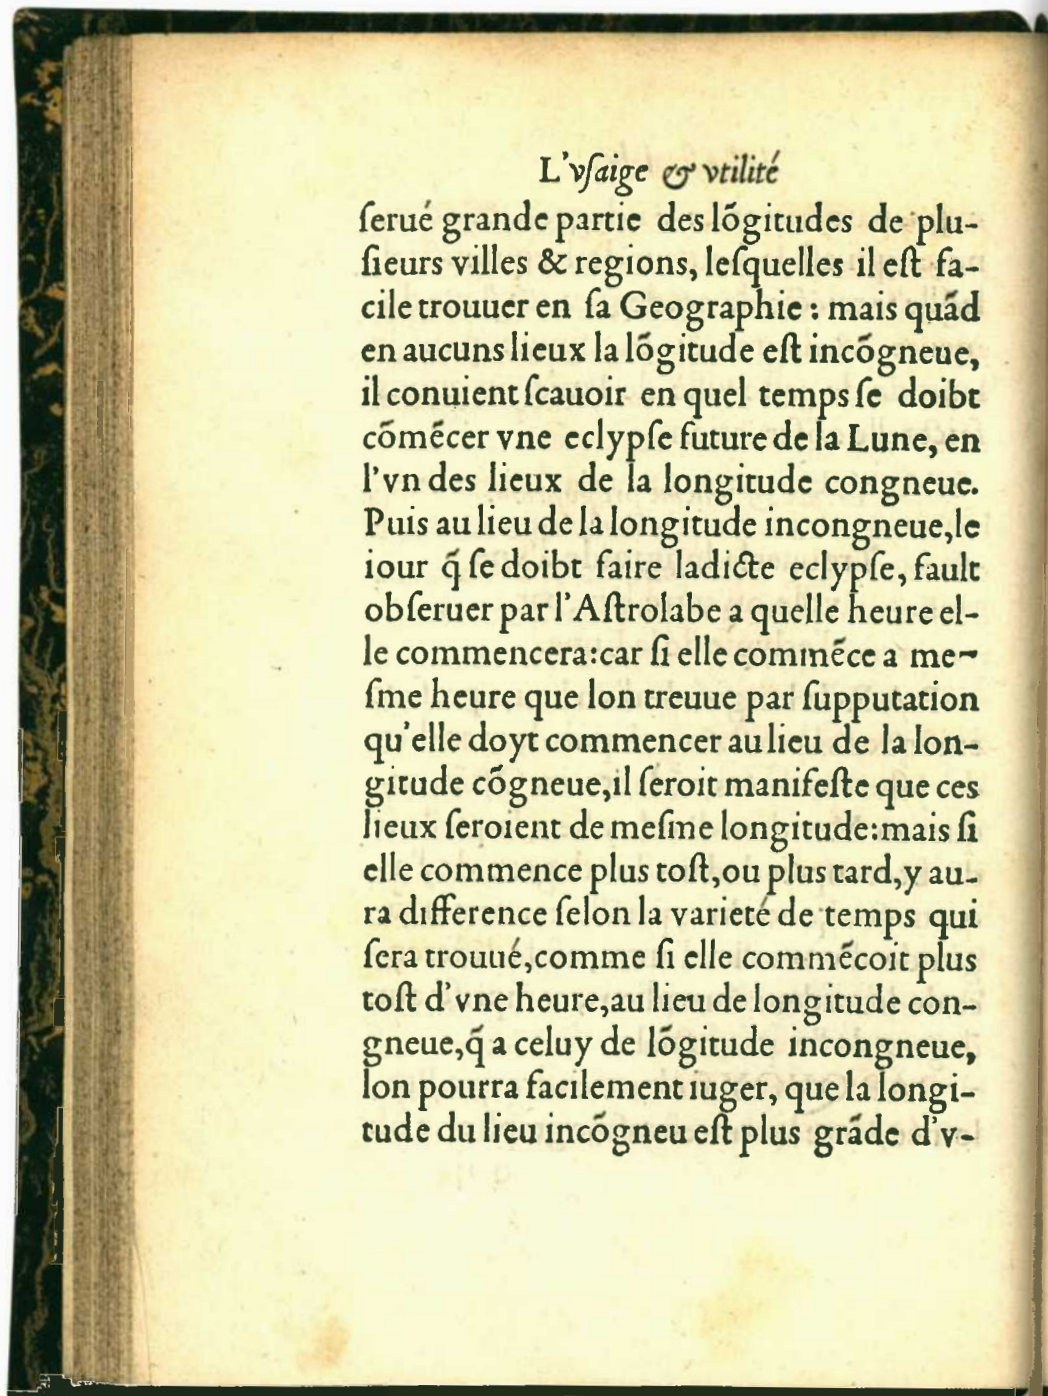 L'vſaige & vtilité
ſerué grande partie des lõgitudes de plu-
ſieurs villes & regions, leſquelles il eſt fa-
cile trouuer en ſa Geographie : mais quãd
en aucuns lieux la lõgitude eſt incõgneue,
il conuient ſcauoir en quel temps ſe doibt
cõmẽcer vne eclypſe future de la Lune, en
l'vn des lieux de la longitude congneue.
Puis au lieu de la longitude incongneue, le
iour q̃ ſe doibt faire ladicte eclypſe, fault
obſeruer par l'Aſtrolabe a quelle heure el-
le commencera: car ſi elle commẽce a me-
ſme heure que lon treuue par ſupputation
qu'elle doyt commencer au lieu de la lon-
gitude cõgneue, il ſeroit manifeſte que ces
lieux ſeroient de meſme longitude: mais ſi
elle commence plus toſt, ou plus tard, y au-
ra difference ſelon la varieté de temps qui
ſera trouué, comme ſi elle commẽcoit plus
toſt d'vne heure, au lieu de longitude con-
gneue, q̃ a celuy de lõgitude incongneue,
lon pourra facilement iuger, que la longi-
tude du lieu incõgneu eſt plus grãde d'v-